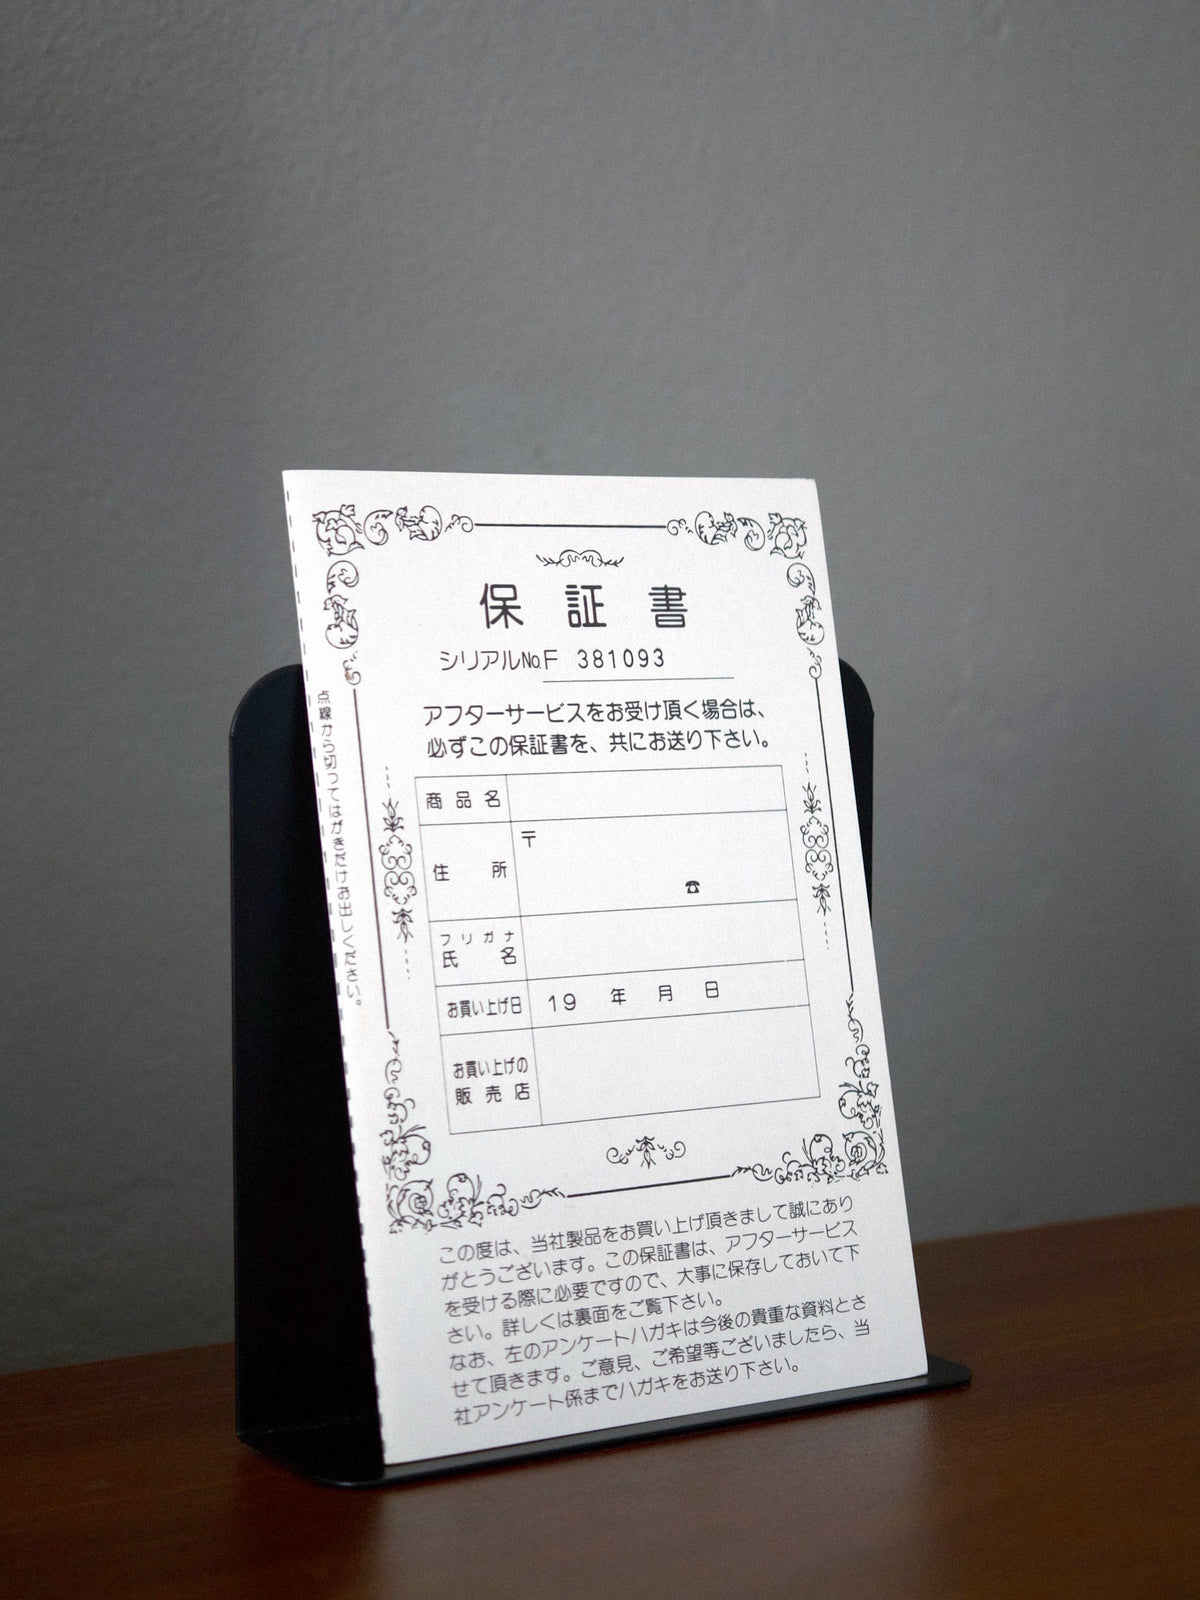 保証書
シリアルNo.F 381093
アフターサービスをお受け頂く場合は、
必ずこの保証書を、共にお送り下さい。
商品名
住所 〒
☎
フリガナ
氏名
お買い上げ日 19 年 月 日
お買い上げの
販売店
この度は、当社製品をお買い上げ頂きまして誠にあり
がとうございます。この保証書は、アフターサービス
を受ける際に必要ですので、大事に保存しておいて下
さい。詳しくは裏面をご覧下さい。
なお、左のアンケートハガキは今後の貴重な資料とさ
せて頂きます。ご意見、ご希望等ございましたら、当
社アンケート係までハガキをお送り下さい。
点線から切ってはがきだけお出しください。